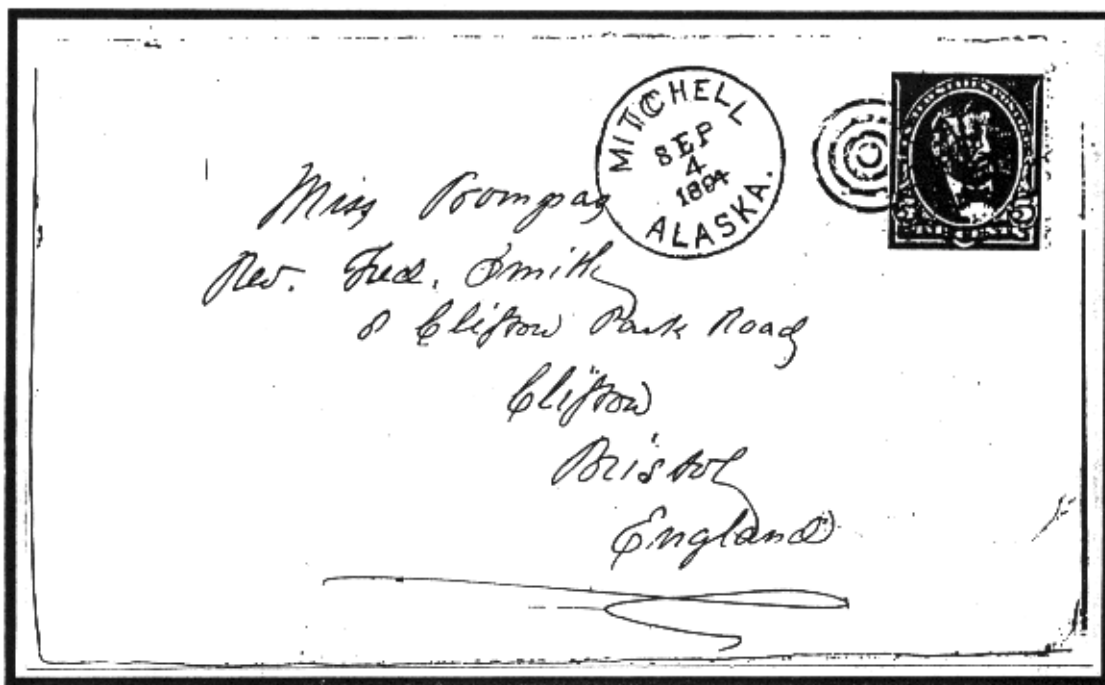 MITCHELL
SEP
4
1894
ALASKA.
Miss Bompas
Rev. Fred. Smith
8 Clifton Park Road
Clifton
Bristol
England